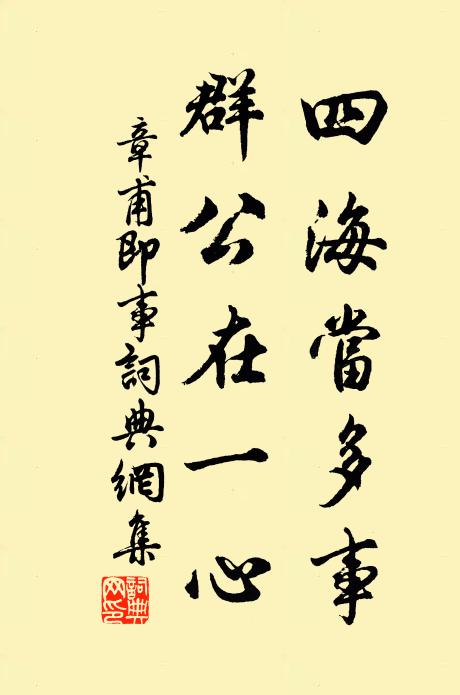 四海當多事
群公在一心
章甫即事詞典網集
詞典
网印